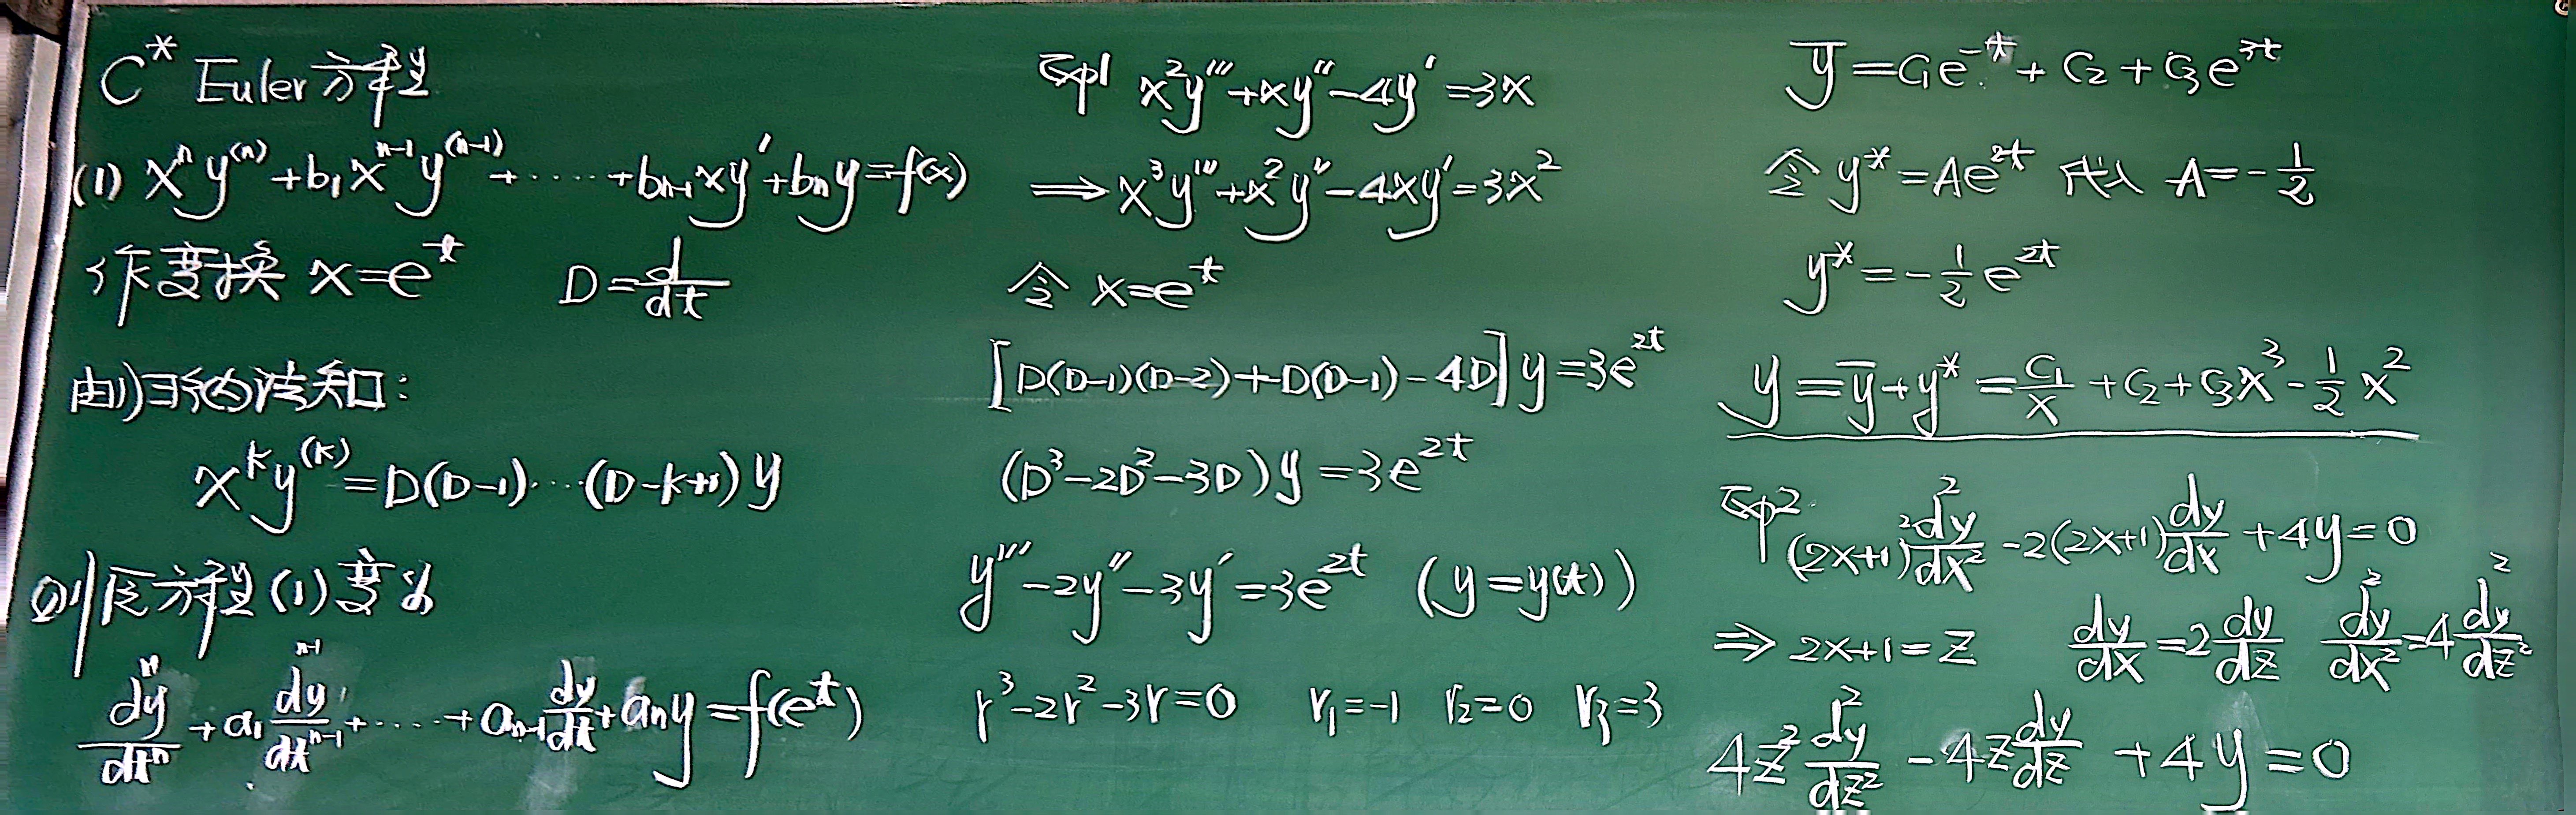 C* Euler方程
(1) xⁿy⁽ⁿ⁾+b₁xⁿ⁻¹y⁽ⁿ⁻¹⁾+······+bₙ₋₁xy′+bₙy=f(x)
作变换 x=eᵗ D=d/dt
由1)归纳法知:
xᵏy⁽ᵏ⁾=D(D-1)···(D-k+1)y
则原方程(1)变为
dⁿy/dtⁿ+a₁dⁿ⁻¹y/dtⁿ⁻¹+·····+aₙ₋₁dy/dt+aₙy=f(eᵗ)
例1 x²y‴+xy″-4y′=3x
⟹x³y‴+x²y″-4xy′=3x²
令 x=eᵗ
[D(D-1)(D-2)+D(D-1)-4D]y=3e²ᵗ
(D³-2D²-3D)y=3e²ᵗ
y‴-2y″-3y′=3e²ᵗ (y=y(t))
r³-2r²-3r=0 r₁=-1 r₂=0 r₃=3
ȳ=C₁e⁻ᵗ+C₂+C₃e³ᵗ
令 y*=Ae²ᵗ 代入 A=-1/2
y*=-1/2 e²ᵗ
y=ȳ+y*=C₁/x+C₂+C₃x³-1/2 x²
例2 (2x+1)²d²y/dx²-2(2x+1)dy/dx+4y=0
⇒ 2x+1=z dy/dx=2dy/dz d²y/dx²=4d²y/dz²
4z²d²y/dz²-4zdy/dz+4y=0